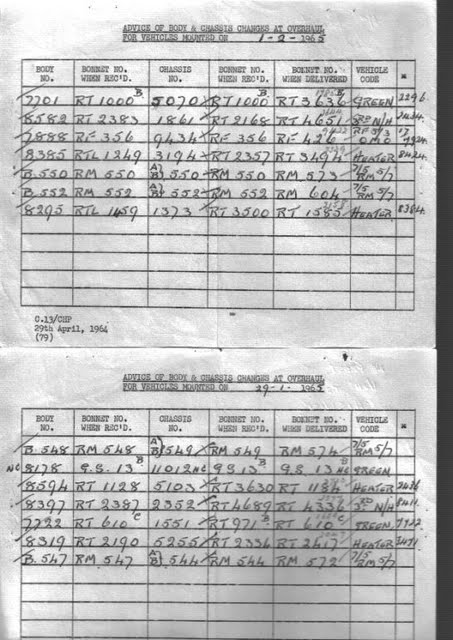 ADVICE OF BODY & CHASSIS CHANGES AT OVERHAUL
FOR VEHICLES MOUNTED ON 1-2-1965
BODY NO. BONNET NO. WHEN REC'D. CHASSIS NO. BONNET NO. WHEN REC'D. BONNET NO. WHEN DELIVERED VEHICLE CODE *
7701 RT 1000 B 5070 RT 1000 B RT 3636 GREEN 2296
8582 RT 2383 1861 RT 2168 RT 4651 N/H
7888 RF 356 9434 RF 356 RF 426 RF 5/3
8385 RTL 1249 3194 RT 2357 RT 3494 HEATER 8424
B.550 RM 550 A) B) 550 RM 550 RM 573 7/5 RM 5/7
B.552 RM 552 A) B) 552 RM 552 RM 604 7/5 RM 5/7
8295 RTL 1459 1373 RT 3500 RT 1585 HEATER 8384
C.13/CHP
29th April, 1964
(79)
ADVICE OF BODY & CHASSIS CHANGES AT OVERHAUL
FOR VEHICLES MOUNTED ON 29-1-1965
BODY NO. BONNET NO. WHEN REC'D. CHASSIS NO. BONNET NO. WHEN REC'D. BONNET NO. WHEN DELIVERED VEHICLE CODE
B.548 RM 548 A) B) 549 RM 549 RM 574 7/5 RM 5/7
NC 8178 G.S. 13 B 11012 NC G.S 13 B G.S. 13 NC GREEN
8594 RT 1128 5103 RT 3630 RT 1184 HEATER
8397 RT 2387 2352 RT 4689 RT 4336 N/H 8411
7722 RT 610 C 1551 RT 971 RT 610 GREEN 7722
8319 RT 2190 5255 RT 2336 RT 2417 HEATER
B.547 RM 547 A) B) 544 RM 544 RM 572 7/5 RM 5/7